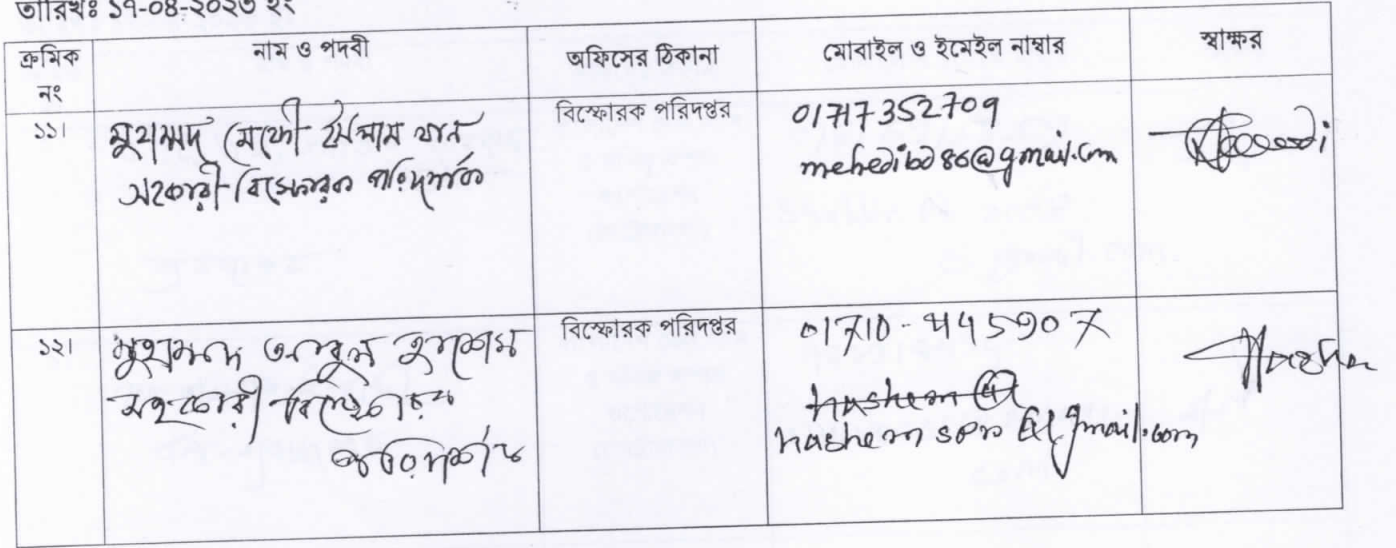 তারিখঃ ১৭-০৪-২০২৩ ইং
ক্রমিক নং
নাম ও পদবী
অফিসের ঠিকানা
মোবাইল ও ইমেইল নাম্বার
স্বাক্ষর
১১।
মুহাম্মদ মেহেদী ইসলাম খান
সহকারী বিস্ফোরক পরিদর্শক
বিস্ফোরক পরিদপ্তর
01717352709
mehedibd86@gmail.com
১২।
মুহাম্মদ আবুল হাশেম
সহকারী বিস্ফোরক
পরিদর্শক
বিস্ফোরক পরিদপ্তর
01710-445907
hashem@
hashem son@gmail.com